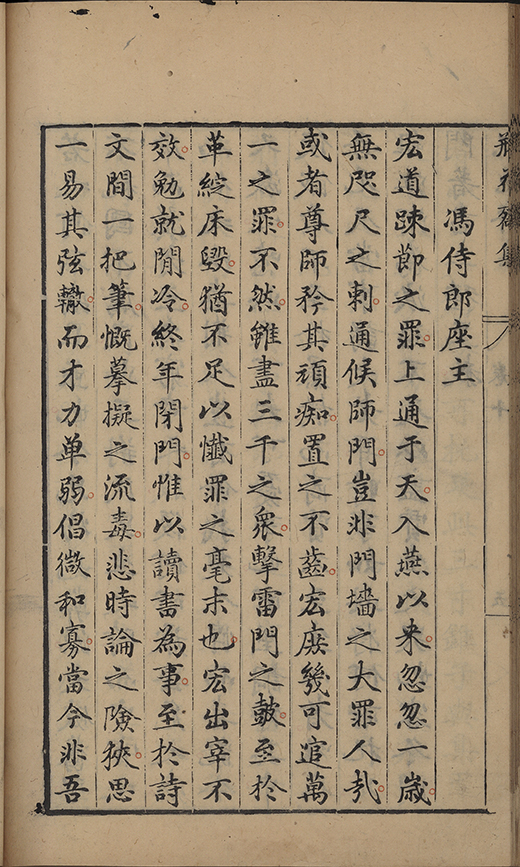 瓶花齋集
馮侍郎座主
宏道踈節之罪上通于天入燕以來忽忽一歲
無咫尺之刺通候師門豈非門墻之大罪人㢤
或者尊師矜其頑痴置之不齒宏庻幾可逭萬
一之罪不然雖盡三千之衆擊雷門之皷至於
革綻床毀猶不足以懺罪之毫末也宏出宰不
效勉就閒冷終年閉門惟以讀書為事至於詩
文間一把筆慨摹擬之流毒悲時論之險狹思
一易其弦轍而才力单弱倡微和寡當今非吾